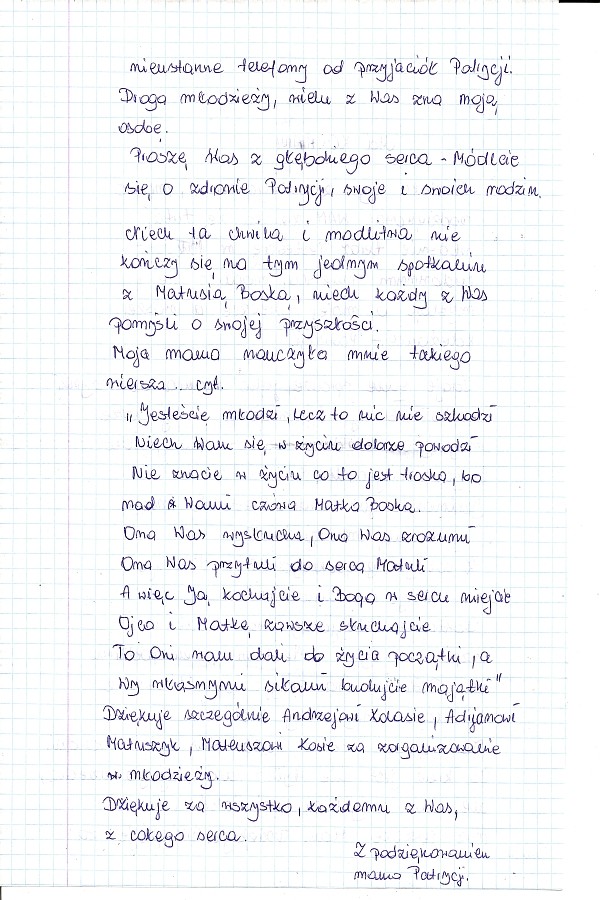 nieustanne telefony od przyjaciół Patrycji.
Droga młodzieży, wielu z Was zna moją
osobę.
Proszę Was z głębokiego serca - Módlcie
się o zdrowie Patrycji, swoje i swoich rodzin.
Niech ta chwila i modlitwa nie
kończy się na tym jednym spotkaniu
z Matusią Boską, niech każdy z Was
pomyśli o swojej przyszłości.
Moja mama nauczyła mnie takiego
wiersza .. cyt.
"Jesteście młodzi, lecz to nic nie szkodzi
Niech Wam się w życiu dobrze powodzi
Nie znacie w życiu co to jest troska, bo
nad Wami czuwa Matka Boska.
Ona Was wysłucha, Ona Was zrozumi
Ona Was przytuli do serca Matuli
A więc Ją kochajcie i Boga w sercu miejcie
Ojca i Matkę zawsze słuchajcie
To Oni wam dali do życia początki, a
Wy własnymi siłami budujcie majątki"
Dziękuje szczególnie Andrzejowi Kolasie, Adrjanowi
Matuszyk, Mateuszowi Kosie za zorganizowanie
w. młodzieży.
Dziękuje za wszystko, każdemu z Was,
z całego serca.
Z podziękowaniem
mama Patrycji.